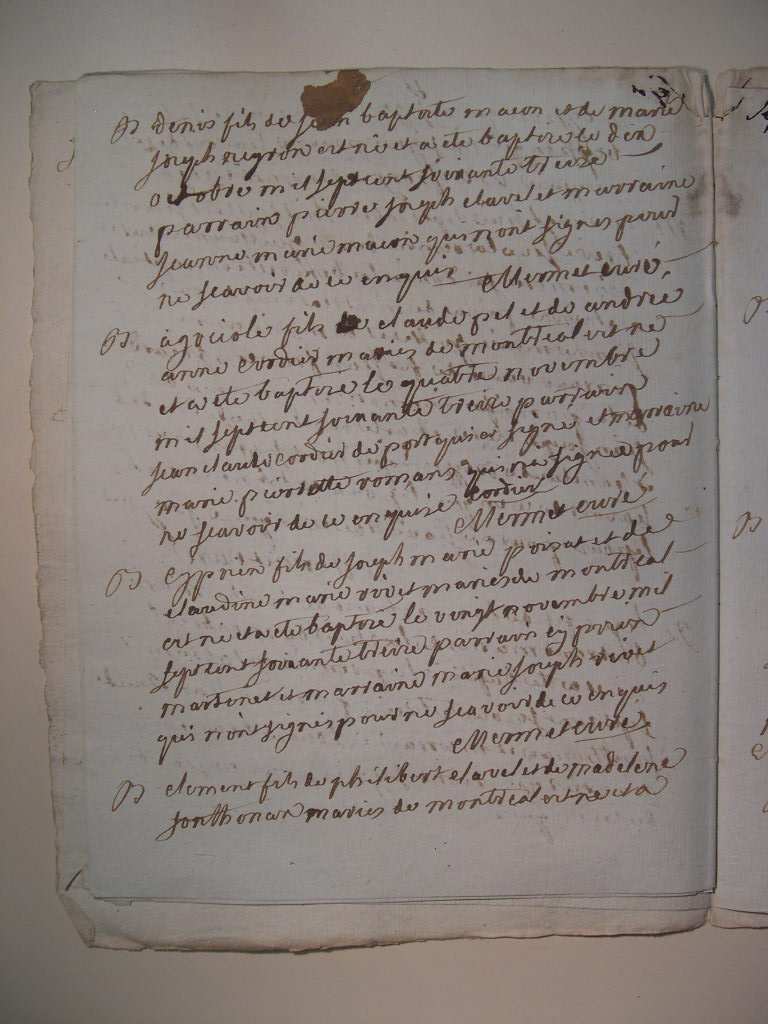 B denis fils de jean baptiste macon et de marie
joseph negron est ne et a ete baptise le dix
octobre mil sept cent soixante treize
parrain pierre joseph clavel et marraine
jeanne marie macon qui n'ont signes pour
ne scavoir de ce enquis Mermet curé.
B fils de claude pel et de andree
anne cordier maries de montreal est ne
et a ete baptise le quatre novembre
mil sept cent soixante treize parrain
jean claude cordier de port qui a signe et marraine
marie pierrette romans qui ne signe pour
ne scavoir de ce enquise cordier
Mermet curé
B cyprien fils de joseph marie poisat et de
claudine marie rivet maries de montreal
est ne et a ete baptise le vingt novembre mil
sept cent soixante treize parrain cyprien
martinet et marraine marie joseph rivet
qui n'ont signes pour ne scavoir de ce enquis
Mermet curé
B clement fils de philibert clavel et de madelene
maries de montreal est ne et a